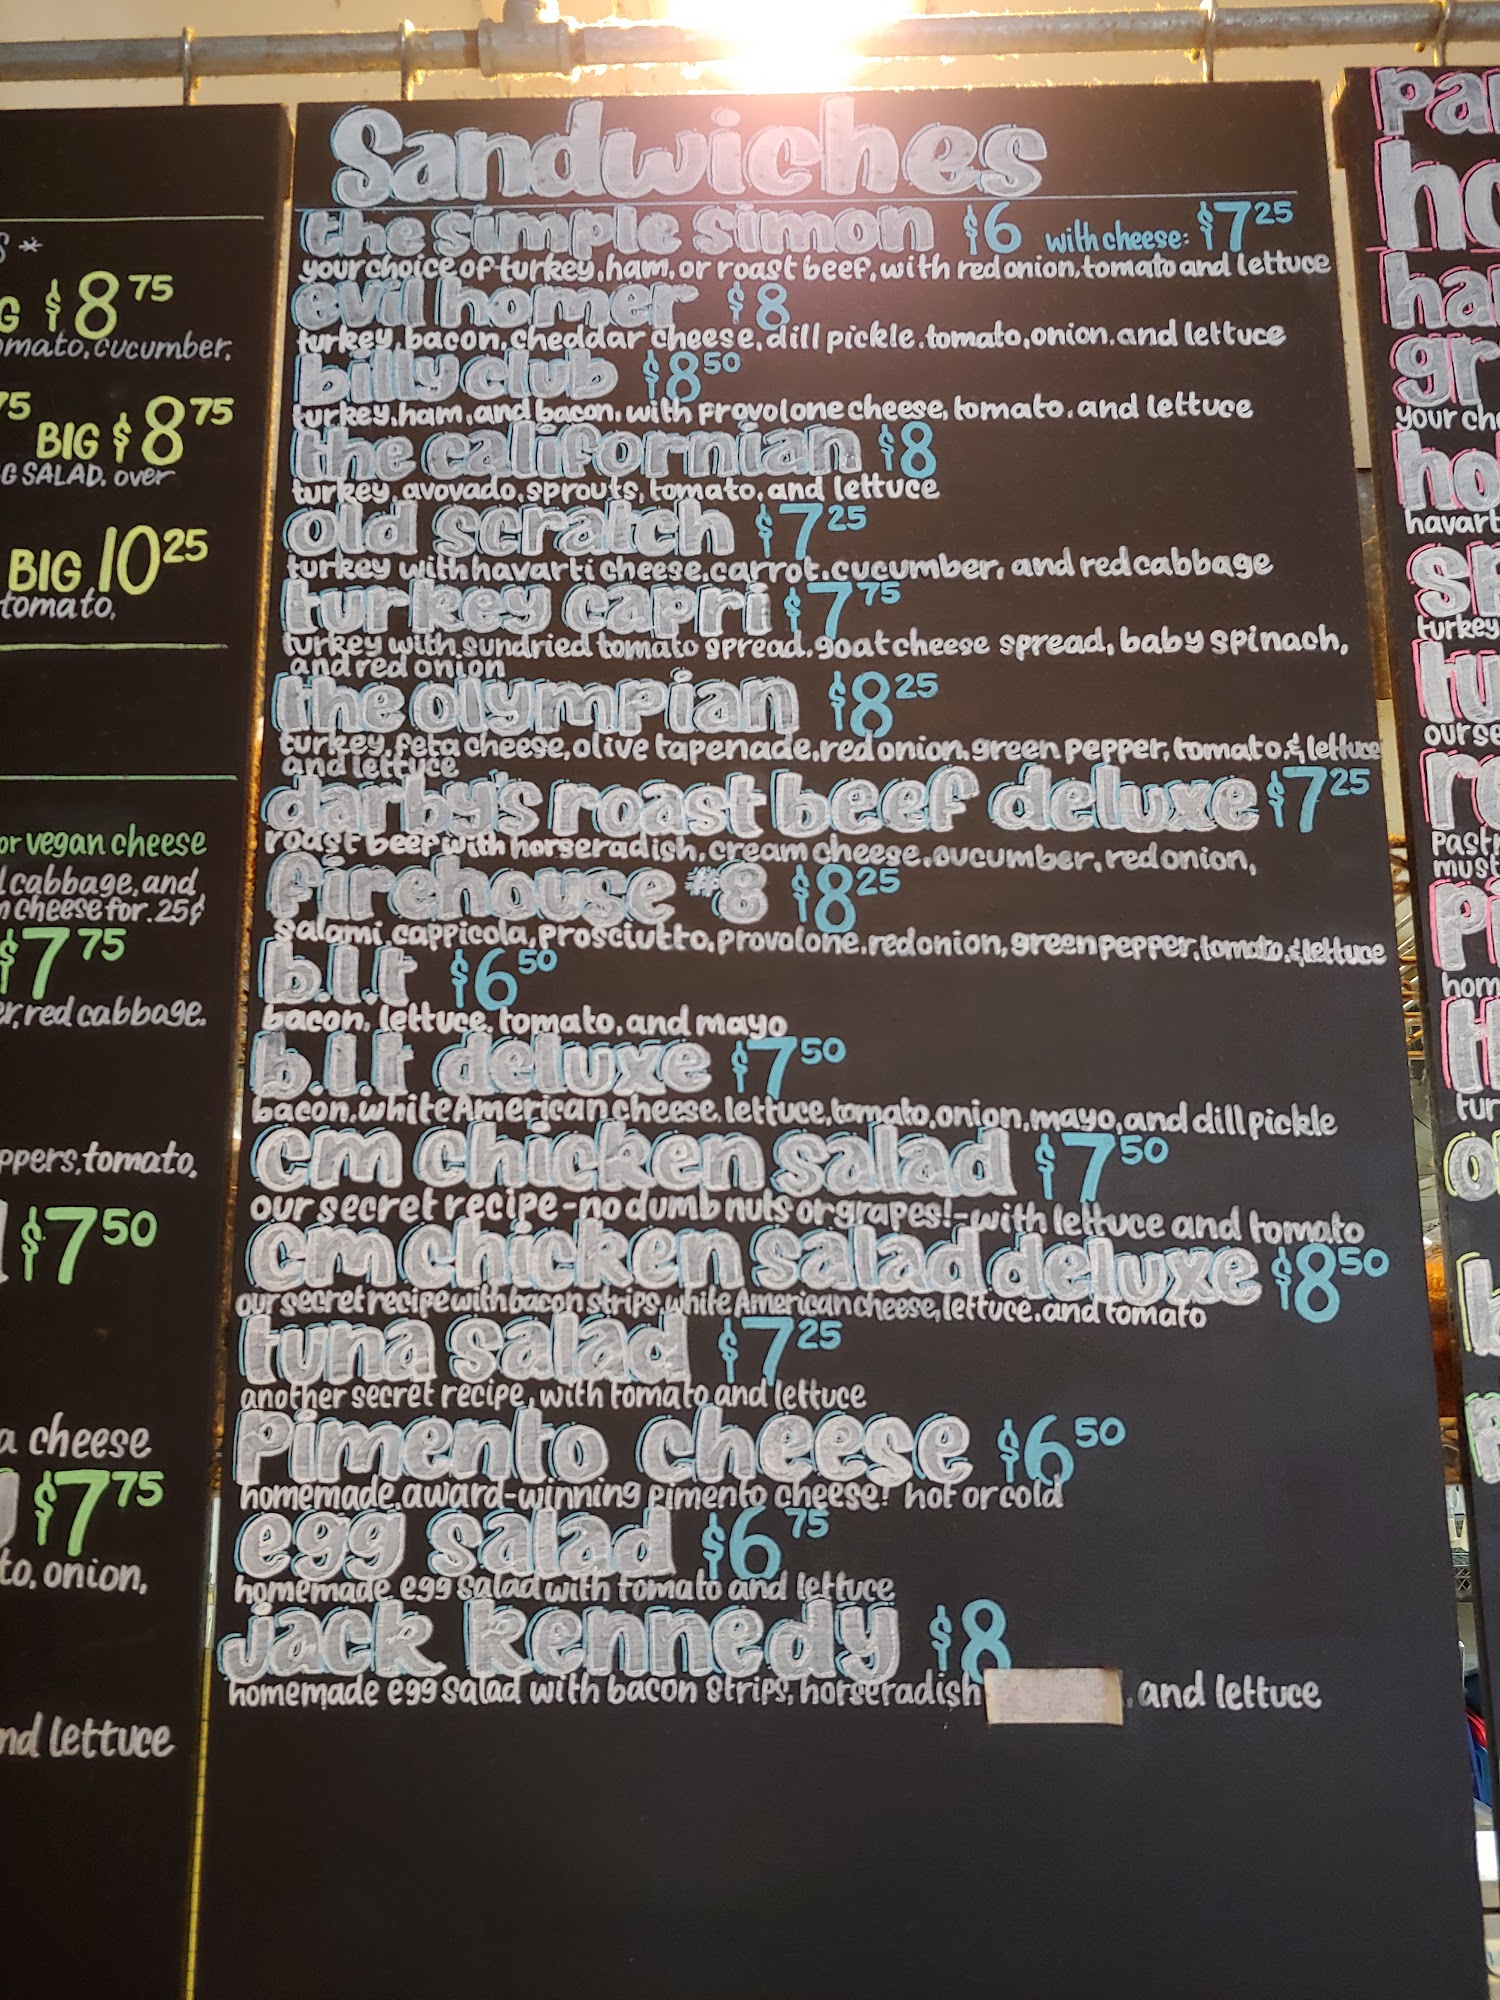 Sandwiches
the simple simon $6 with cheese: $7 25
your choice of turkey, ham, or roast beef, with red onion, tomato and lettuce
evil homer $8
turkey, bacon, cheddar cheese, dill pickle, tomato, onion, and lettuce
billy club $8 50
turkey, ham, and bacon, with provolone cheese, tomato, and lettuce
the californian $8
turkey, avovado, sprouts, tomato, and lettuce
old scratch $7 25
turkey with havarti cheese, carrot, cucumber, and red cabbage
turkey capri $7 75
turkey with sundried tomato spread, goat cheese spread, baby spinach,
and red onion
the olympian $8 25
turkey, feta cheese, olive tapenade, red onion, green pepper, tomato, & lettuce
and lettuce
darby's roast beef deluxe $7 25
roast beef with horseradish, cream cheese, cucumber, red onion,
firehouse #8 $8 25
salami, cappicola, prosciutto, provolone, red onion, green pepper, tomato, & lettuce
b.l.t $6 50
bacon, lettuce, tomato, and mayo
b.l.t deluxe $7 50
bacon, white American cheese, lettuce, tomato, onion, mayo, and dill pickle
cm chicken salad $7 50
our secret recipe - no dumb nuts or grapes! - with lettuce and tomato
cm chicken salad deluxe $8 50
our secret recipe with bacon strips, white American cheese, lettuce, and tomato
tuna salad $7 25
another secret recipe, with tomato and lettuce
Pimento cheese $6 50
homemade, award-winning pimento cheese! hot or cold
egg salad $6 75
homemade egg salad with tomato and lettuce
jack kennedy $8
homemade egg salad with bacon strips, horseradish , and lettuce
$8 75
cucumber,
75 BIG $8 75
SALAD, over
BIG 10 25
tomato,
or vegan cheese
cabbage, and
cheese for .25¢
$7 75
red cabbage.
tomato,
$7 50
cheese
$7 75
onion,
lettuce
your
havart
turkey
our se
must